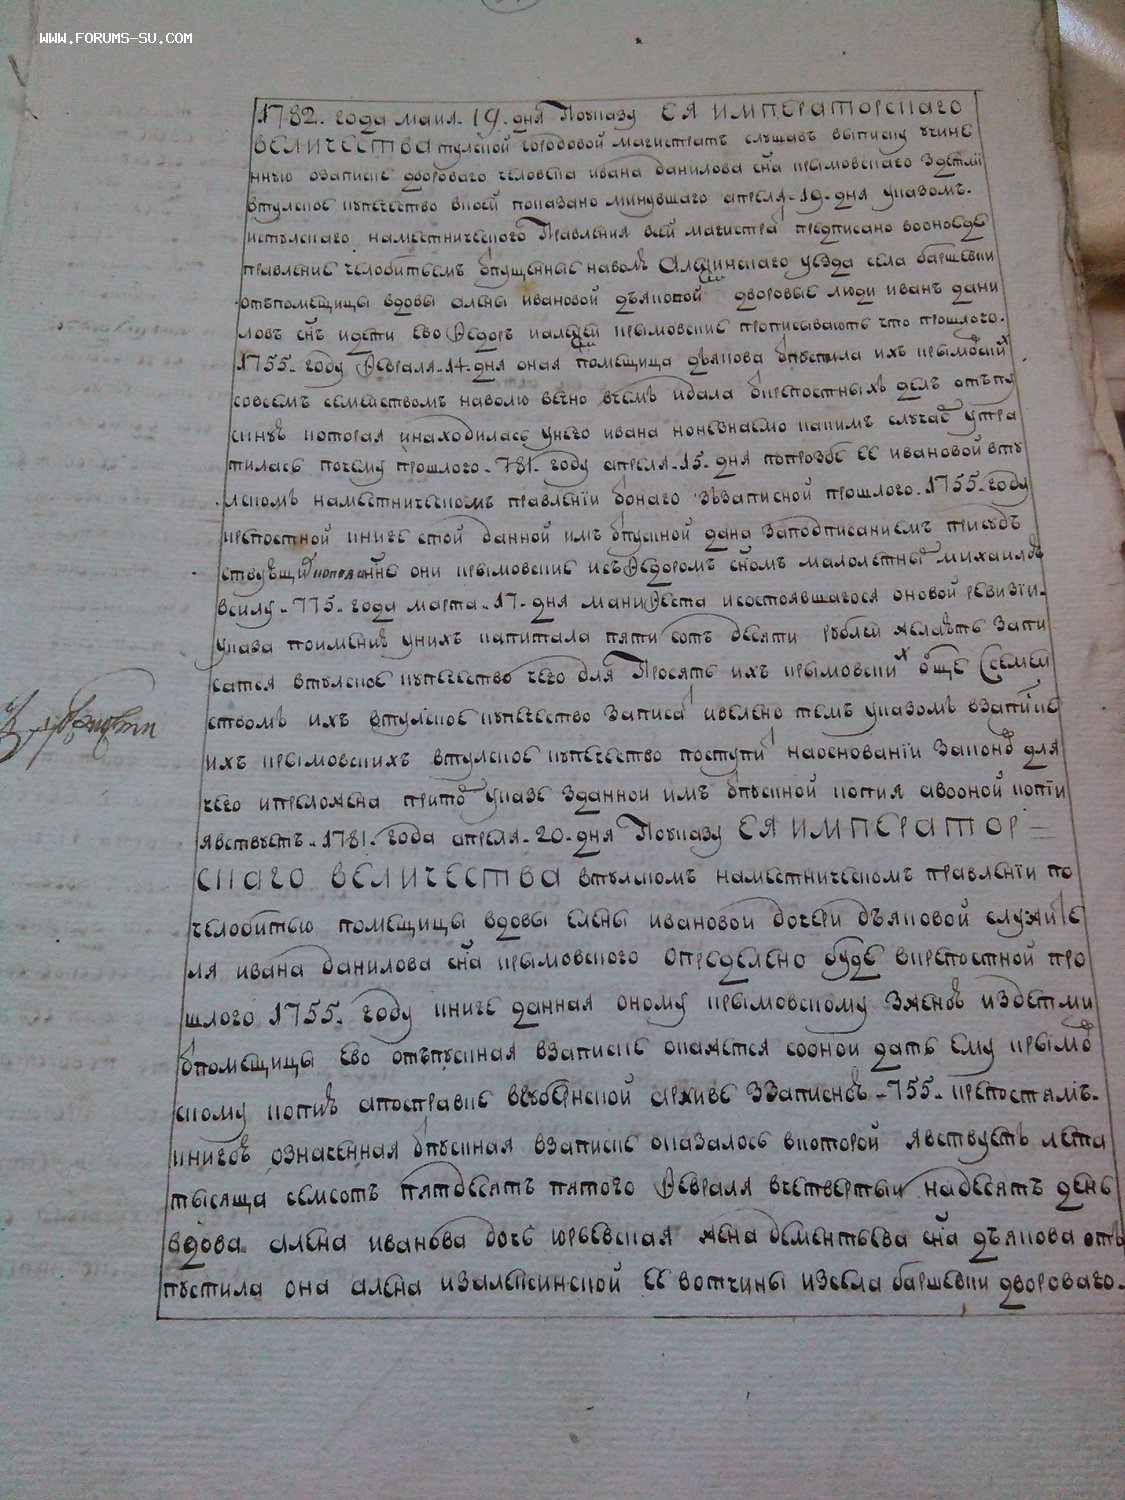 WWW.FORUMS-SU.COM
1782. года маия. 19. дня Поуказу ЕЯ ИМПЕРАТОРСКАГО
ВЕЛИЧЕСТВА тулской городовой магистратъ слушавъ выписку учине
нную озаписке дворового человека ивана данилова сна крымовскаго здетми
втулское купечество вкоей показано минувшаго апреля. 19. дня указомъ.
истулскаго наместнического Правления всей магистра предписано воономде
правление челобитьемъ отпущенные наволю Алексинскаго уезда села баршевки
отъпомещицы вдовы алены ивановой дьяковой дворовые люди иванъ дани
ловъ снъ идети ево Федоръ иалексей крымовские прописываютъ что прошлого.
1755. году Февраля. 14. дня оная помещица дьякова отпустила ихъ крымовских
совсемъ семействомъ наволю вечно вчемъ идала скрепостныхъ делъ отъпу
скную которая инаходилась унего ивана ноневнаемо какимъ случае утра
тилась почему прошлого. 781. году апреля. 15. дня попрозбе ее ивановой вту
лскомъ наместническомъ правлении сонаго зъзаписной прошлого. 1755. году
крепостной книге стой данной имъ отпускной дана заподписаниемъ присуд
ствующи они крымовские исъФедоромъ сномъ малолетне михаиломъ
всилу. 775. года марта. 17. дня маниФеста исостоявшагося оновой ревизiи.
указа поимению унихъ капитала пяти сотъ десяти рублей желаютъ запи
сатся втулское купечество чего для Просятъ ихъ крымовских обще ссемей
ствомъ ихъ втулское купечество записа ивелено темъ указомъ взаписке
ихъ крымовскихъ втулское купечество поступи наосновании закона для
чего иприложена прито указе зданной имъ отпускной копия авооной копiи
явствуетъ. 1781. года апреля. 20. дня Поуказу ЕЯ ИМПЕРАТОР=
СКАГО ВЕЛИЧЕСТВА втулскомъ наместническомъ правленiи по
челобитью помещицы вдовы елены ивановой дочери дъяковой служите
ля ивана данилова сна крымовского определено буде вкрепостной про
шлого 1755. году книге данная оному крымовскому зженою издетми
отпомещицы ево отъпускная взаписке окажется сооной дать ему крымов
скому копию апосправке вгубернской архиве ззаписною. 755. крепостямъ.
книгою означенная отпускная взаписке оказалось вкоторой явствуетъ лета
тысяща семсотъ пятдесятъ пятого Февраля вчетвертый надесятъ день
вдова алена иванова дочь юрьевская жена дементьева сна дъякова отъ
пустила она алена изалексинской ее вотчины изсела баршевки дворового.